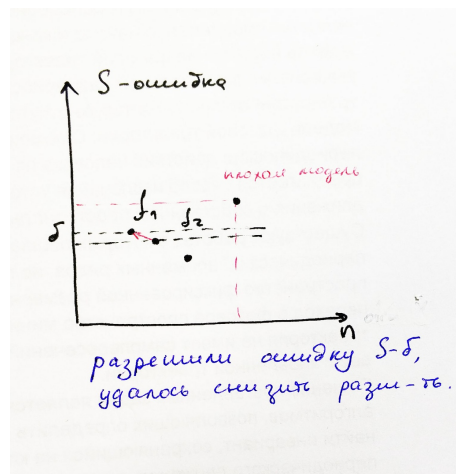 S-ошибка
плохом модель
f₁
f₂
δ
n
разрешили ошибку S-δ,
удалось снизить разм-ть.